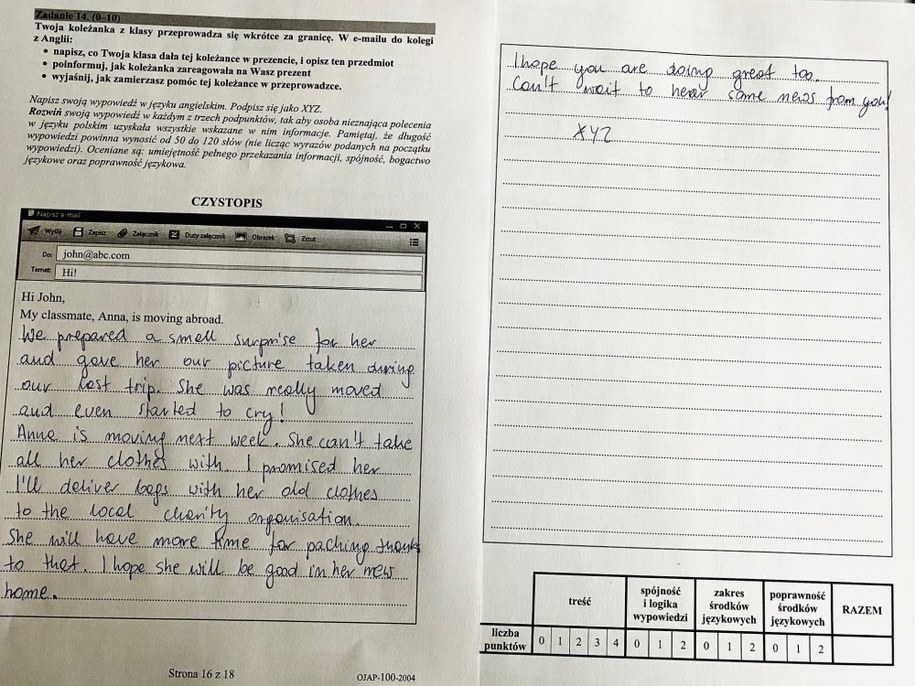 Zadanie 14. (0–10)
Twoja koleżanka z klasy przeprowadza się wkrótce za granicę. W e-mailu do kolegi
z Anglii:
• napisz, co Twoja klasa dała tej koleżance w prezencie, i opisz ten przedmiot
• poinformuj, jak koleżanka zareagowała na Wasz prezent
• wyjaśnij, jak zamierzasz pomóc tej koleżance w przeprowadzce.
Napisz swoją wypowiedź w języku angielskim. Podpisz się jako XYZ.
Rozwiń swoją wypowiedź w każdym z trzech podpunktów, tak aby osoba nieznająca polecenia
w języku polskim uzyskała wszystkie wskazane w nim informacje. Pamiętaj, że długość
wypowiedzi powinna wynosić od 50 do 120 słów (nie licząc wyrazów podanych na początku
wypowiedzi). Oceniane są: umiejętność pełnego przekazania informacji, spójność, bogactwo
językowe oraz poprawność językowa.
CZYSTOPIS
Napisz e-mail
Wyślij Zapisz Załącznik Duży załącznik Obrazek Zrzut
Do: john@abc.com
Temat: Hi!
Hi John,
My classmate, Anna, is moving abroad.
We prepared a small surprise for her
and gave her our picture taken during
our last trip. She was really moved
and even started to cry!
Anna is moving next week. She can't take
all her clothes with. I promised her
I'll deliver bags with her old clothes
to the local charity organisation.
She will have more time for paching thanks
to that. I hope she will be good in her new
home.
Strona 16 z 18
OJAP-100-2004
I hope you are doing great too.
Can't wait to hear some news from you!
XYZ
treść
spójność i logika wypowiedzi
zakres środków językowych
poprawność środków językowych
RAZEM
liczba punktów 0 1 2 3 4 0 1 2 0 1 2 0 1 2